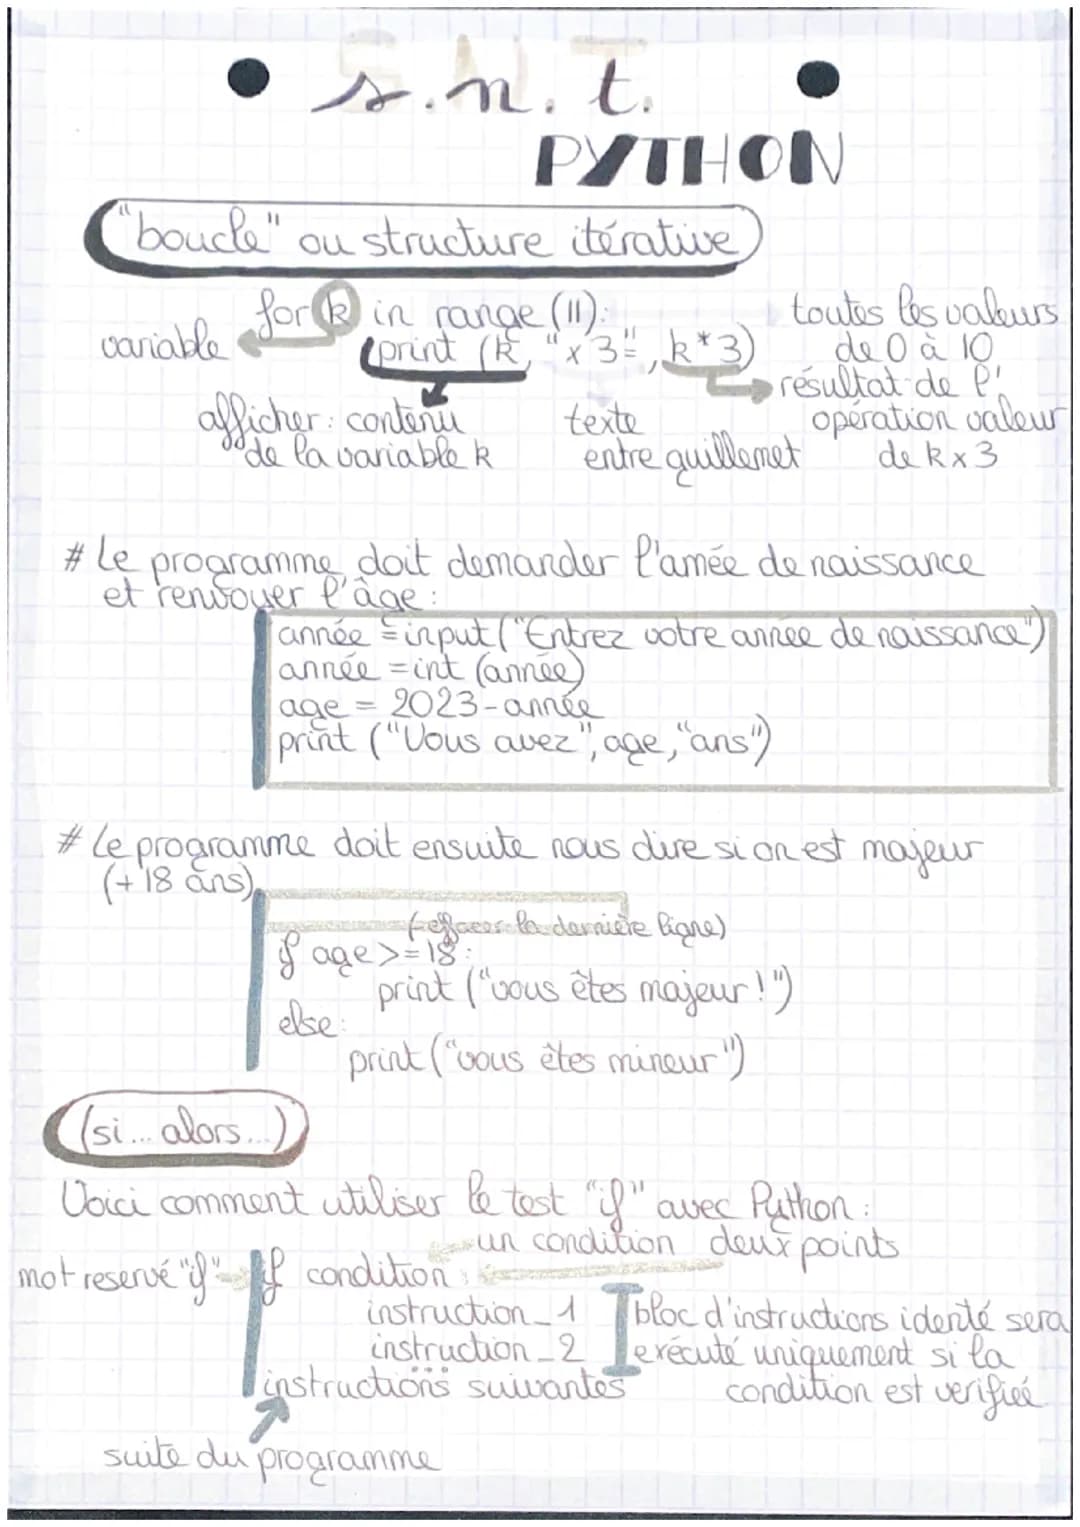 s.n.t.
PYTHON
"boucle" ou structure itérative
for k in range (11):
print (k, "x 3=", k*3)
variable
toutes les valeurs
de 0 à 10
résultat de l'
opération valeur
de k x 3
afficher: contenu
de la variable k
texte
entre guillemet
# Le programme doit demander l'année de naissance
et renvoyer l'âge:
année = input ("Entrez votre année de naissance")
année = int (année)
age = 2023-année
print ("Vous avez", age, "ans")
# Le programme doit ensuite nous dire si on est majeur
(+ 18 ans)
(effacer la dernière ligne)
if age >= 18:
print ("vous êtes majeur!")
else:
print ("vous êtes mineur")
(si... alors...)
Voici comment utiliser le test "if" avec Python:
un condition deux points
mot reservé "if" if condition:
instruction_1
instruction_2
bloc d'instructions identé sera
exécuté uniquement si la
condition est verifieé
instructions suivantes
suite du programme